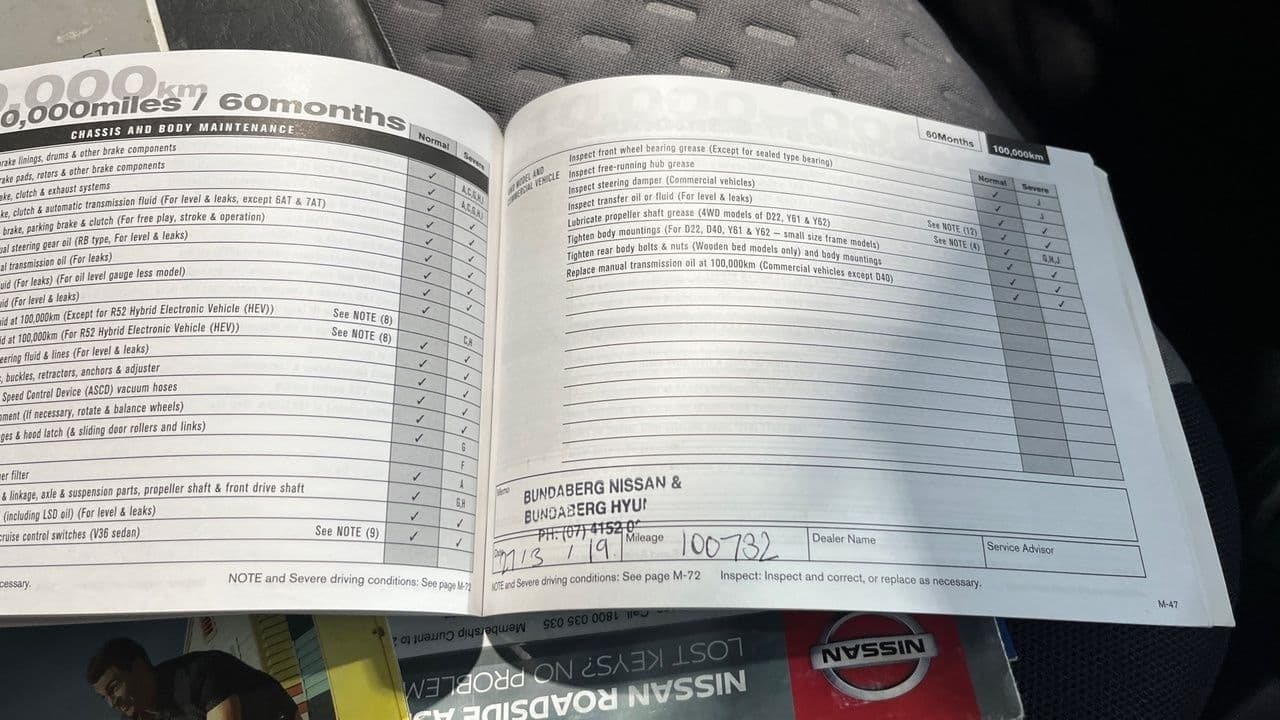 ,000km
0,000miles / 60months
CHASSIS AND BODY MAINTENANCE
Normal
Severe
rake linings, drums & other brake components
✓ A,C,G,H,I
rake pads, rotors & other brake components
✓ A,C,G,H,I
ake, clutch & exhaust systems
✓ ✓
ke, clutch & automatic transmission fluid (For level & leaks, except 6AT & 7AT)
✓ ✓
brake, parking brake & clutch (For free play, stroke & operation)
✓ ✓
al steering gear oil (RB type, For level & leaks)
✓ ✓
al transmission oil (For leaks)
✓ ✓
uid (For leaks) (For oil level gauge less model)
✓ ✓
uid (For level & leaks)
id at 100,000km (Except for R52 Hybrid Electronic Vehicle (HEV)) See NOTE (8)
id at 100,000km (For R52 Hybrid Electronic Vehicle (HEV)) See NOTE (8)
eering fluid & lines (For level & leaks)
, buckles, retractors, anchors & adjuster
Speed Control Device (ASCD) vacuum hoses
nment (If necessary, rotate & balance wheels)
ges & hood latch (& sliding door rollers and links)
C,H
G
F
er filter
A
& linkage, axle & suspension parts, propeller shaft & front drive shaft
G,H
(including LSD oil) (For level & leaks)
cruise control switches (V36 sedan) See NOTE (9)
cessary.
NOTE and Severe driving conditions: See page M-72
60Months
100,000km
Normal
Severe
MODEL AND
COMMERCIAL VEHICLE
Inspect front wheel bearing grease (Except for sealed type bearing)
✓ J
Inspect free-running hub grease
✓ J
Inspect steering damper (Commercial vehicles)
✓ ✓
Inspect transfer oil or fluid (For level & leaks)
✓ ✓
Lubricate propeller shaft grease (4WD models of D22, Y61 & Y62) See NOTE (12)
✓ G,H,J
Tighten body mountings (For D22, D40, Y61 & Y62 – small size frame models) See NOTE (4)
✓ ✓
Tighten rear body bolts & nuts (Wooden bed models only) and body mountings
✓ ✓
Replace manual transmission oil at 100,000km (Commercial vehicles except D40)
✓ ✓
Memo
BUNDABERG NISSAN &
BUNDABERG HYU
PH: (07) 4152 0
Date 27/3/19
Mileage 100732
Dealer Name
Service Advisor
NOTE and Severe driving conditions: See page M-72 Inspect: Inspect and correct, or replace as necessary.
M-47
NISSAN
NISSAN ROADSIDE AS
LOST KEYS? NO PROBLEM
Membership Current to
Call 1800 035 035